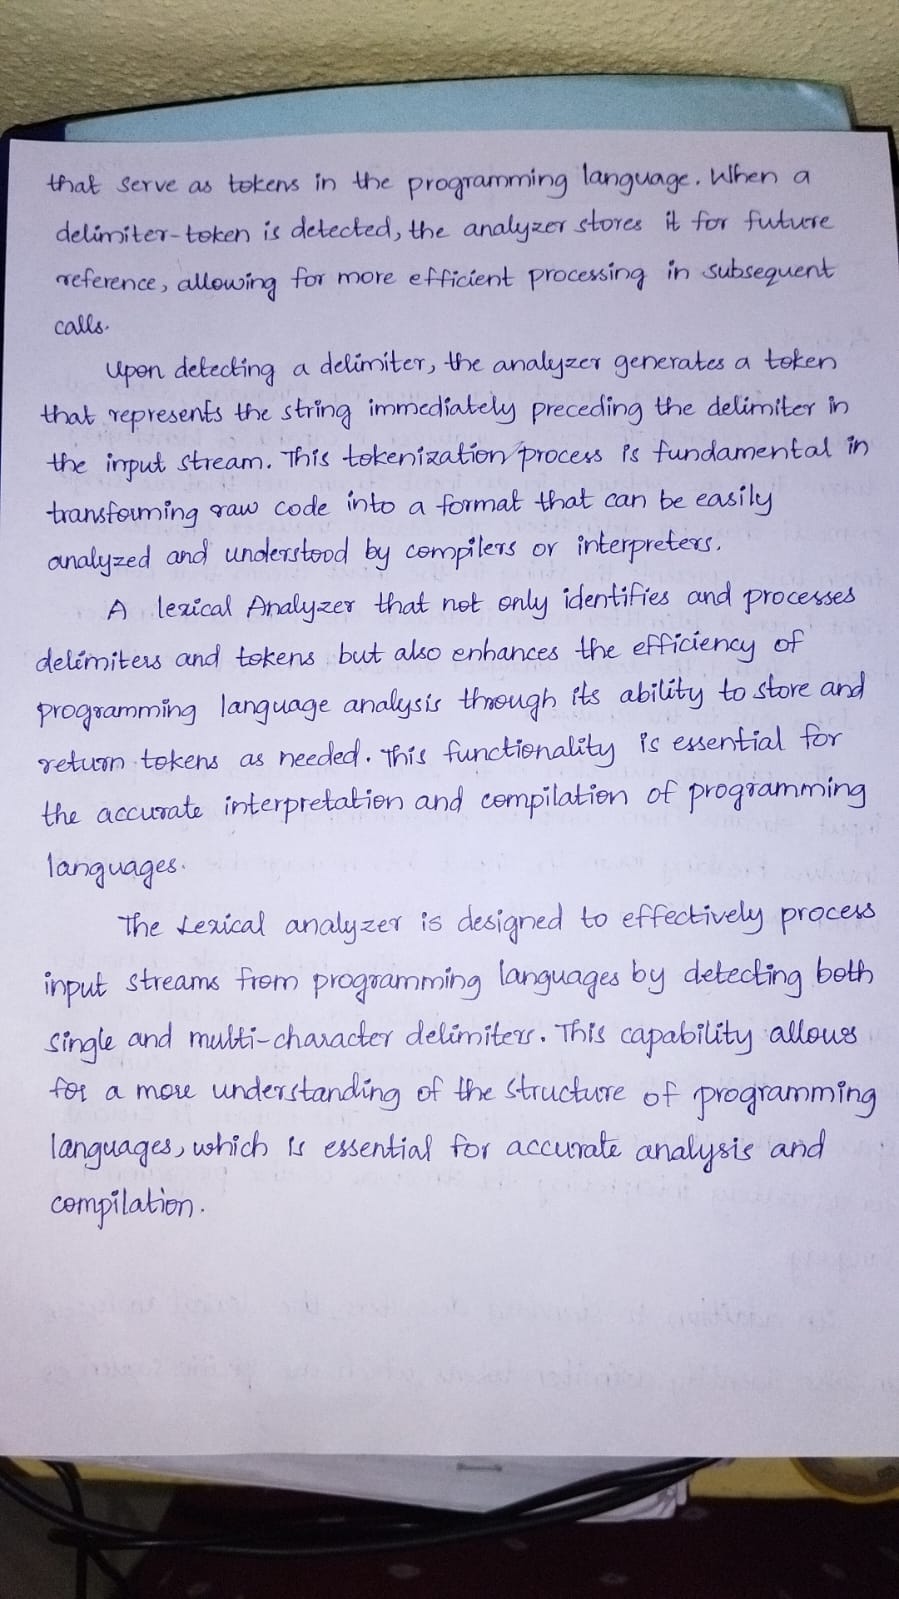 that serve as tokens in the programming language. When a
delimiter-token is detected, the analyzer stores it for future
reference, allowing for more efficient processing in subsequent
calls.
Upon detecting a delimiter, the analyzer generates a token
that represents the string immediately preceding the delimiter in
the input stream. This tokenization process is fundamental in
transforming raw code into a format that can be easily
analyzed and understood by compilers or interpreters.
A lexical Analyzer that not only identifies and processes
delimiters and tokens but also enhances the efficiency of
programming language analysis through its ability to store and
return tokens as needed. This functionality is essential for
the accurate interpretation and compilation of programming
languages.
The Lexical analyzer is designed to effectively process
input streams from programming languages by detecting both
single and multi-character delimiters. This capability allows
for a more understanding of the structure of programming
languages, which is essential for accurate analysis and
compilation.